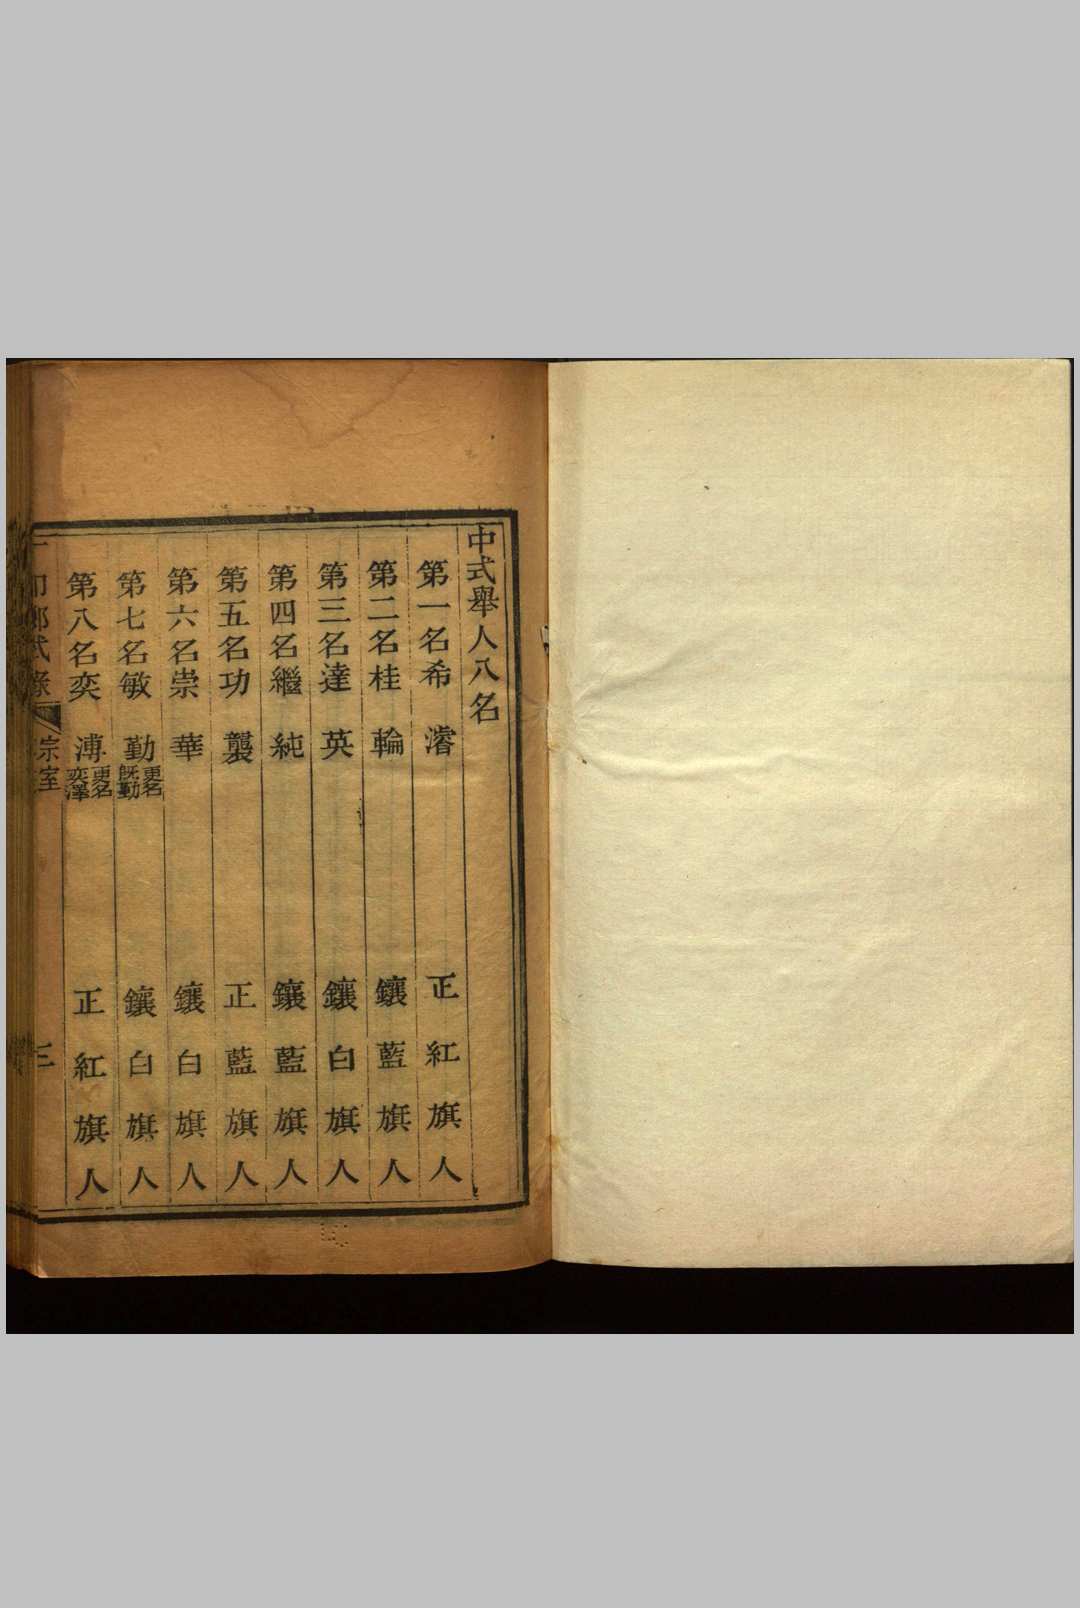 中式舉人八名
第一名希濬 正紅旗人
第二名桂輪 鑲藍旗人
第三名達英 鑲白旗人
第四名繼純 鑲藍旗人
第五名功襲 正藍旗人
第六名崇華 鑲白旗人
第七名敏勤更名既勤 鑲白旗人
第八名奕溥更名奕澤 正紅旗人
鄉試錄 宗室 三